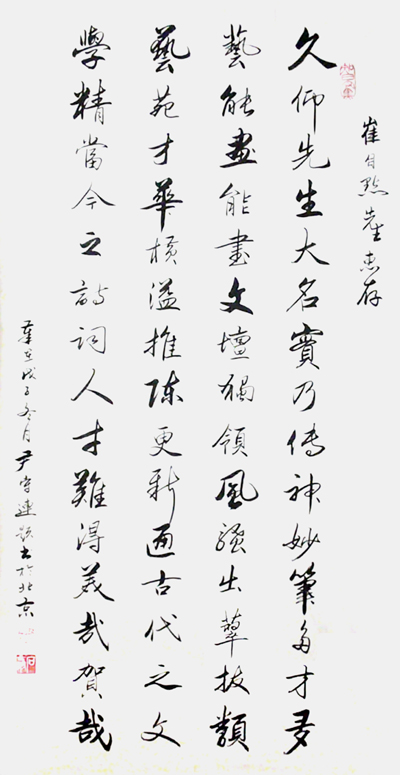 崔自默先生惠存
久仰先生大名實乃傳神妙筆多才多
藝能畫能書文壇獨領風騷出萃拔類
藝苑才華橫溢推陳更新通古代之文
學精當今之詩詞人才難得美哉賀哉
歲在戊子冬月尹守連題書於北京